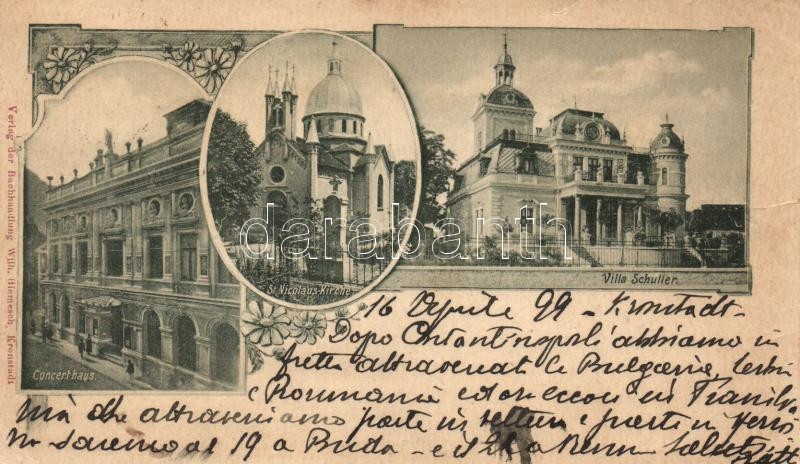 Verlag der Buchhandlung Wilh. Hiemesch, Kronstadt
Concerthaus.
St. Nicolaus-Kirche
Villa Schuller.
darabanth
16 Aprile 99 - Kronstadt -
Dopo Costantinopoli abbiamo in
fretta attraversato la Bulgaria,
Roumania ed eccoci in Transilva
nia che attraversiamo parte in vettura e parte in ferro
saremo al 19 a Buda - e il 21 a